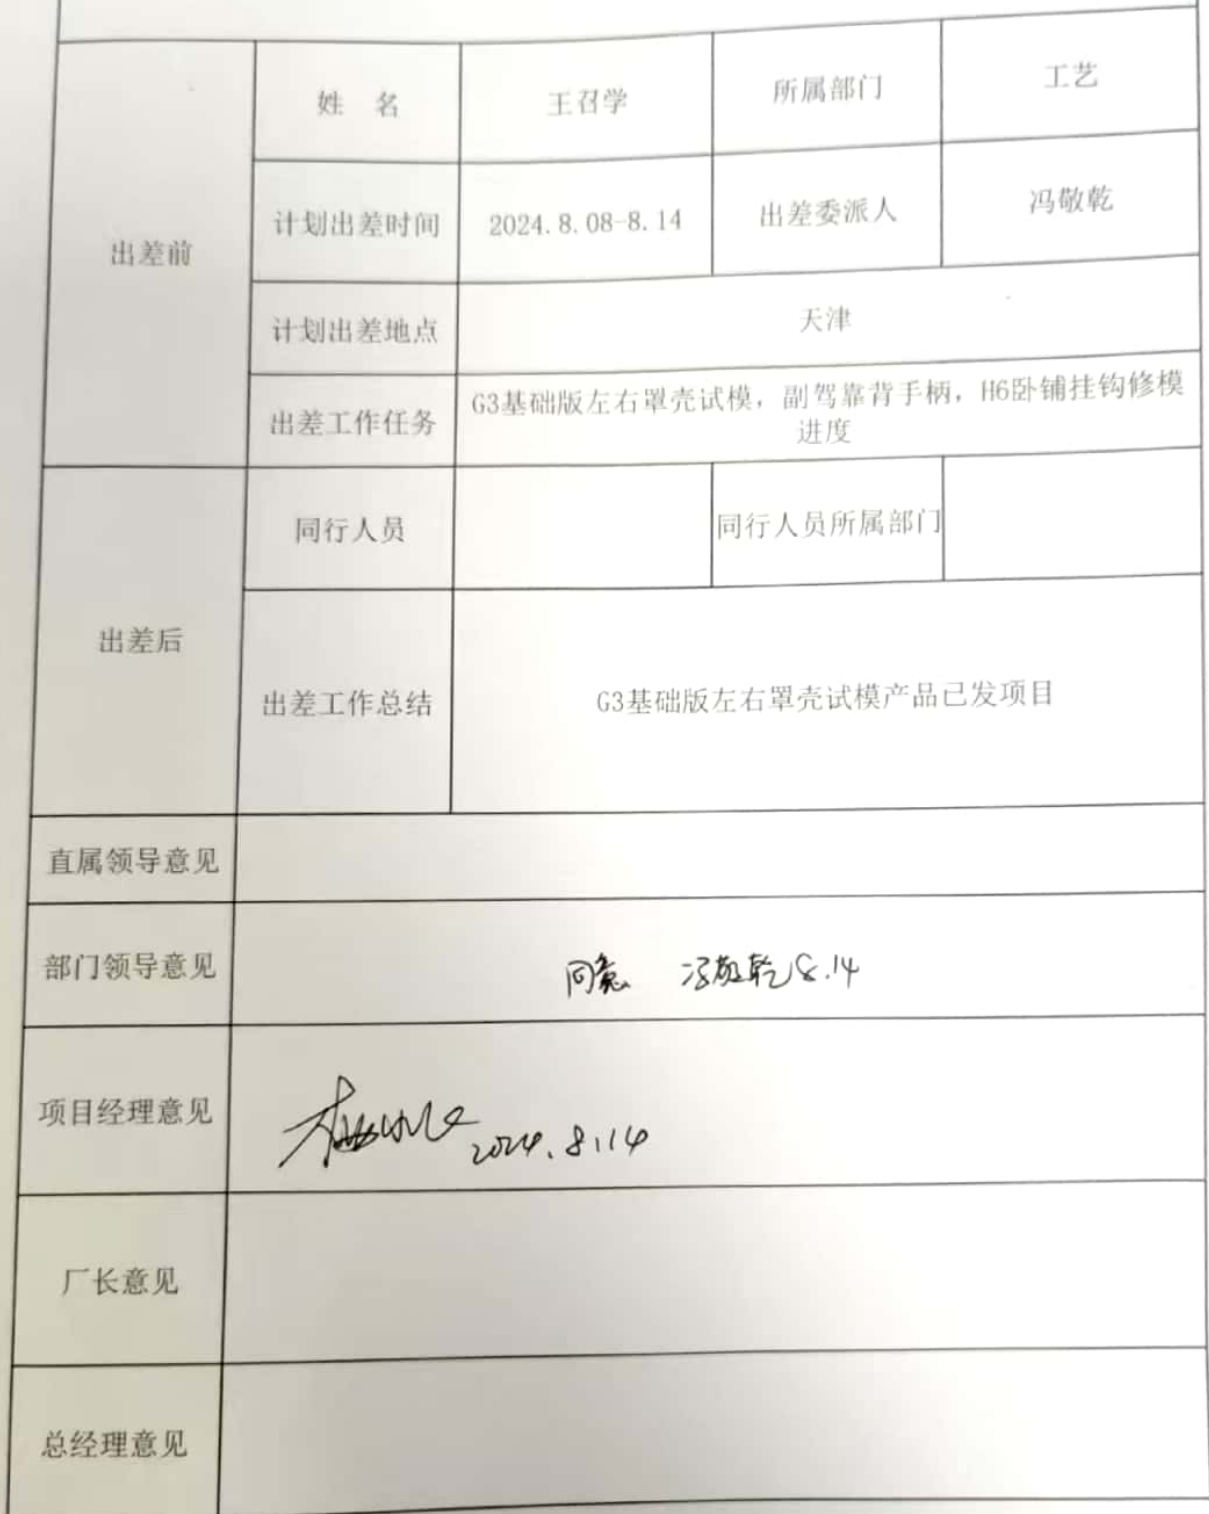 姓 名 王召学 所属部门 工艺
出差前 计划出差时间 2024.8.08-8.14 出差委派人 冯敬乾
计划出差地点 天津
出差工作任务 G3基础版左右罩壳试模，副驾靠背手柄，H6卧铺挂钩修模
进度
出差后 同行人员 同行人员所属部门
出差工作总结 G3基础版左右罩壳试模产品已发项目
直属领导意见
部门领导意见 同意 冯敬乾 8.14
项目经理意见 2024.8.14
厂长意见
总经理意见